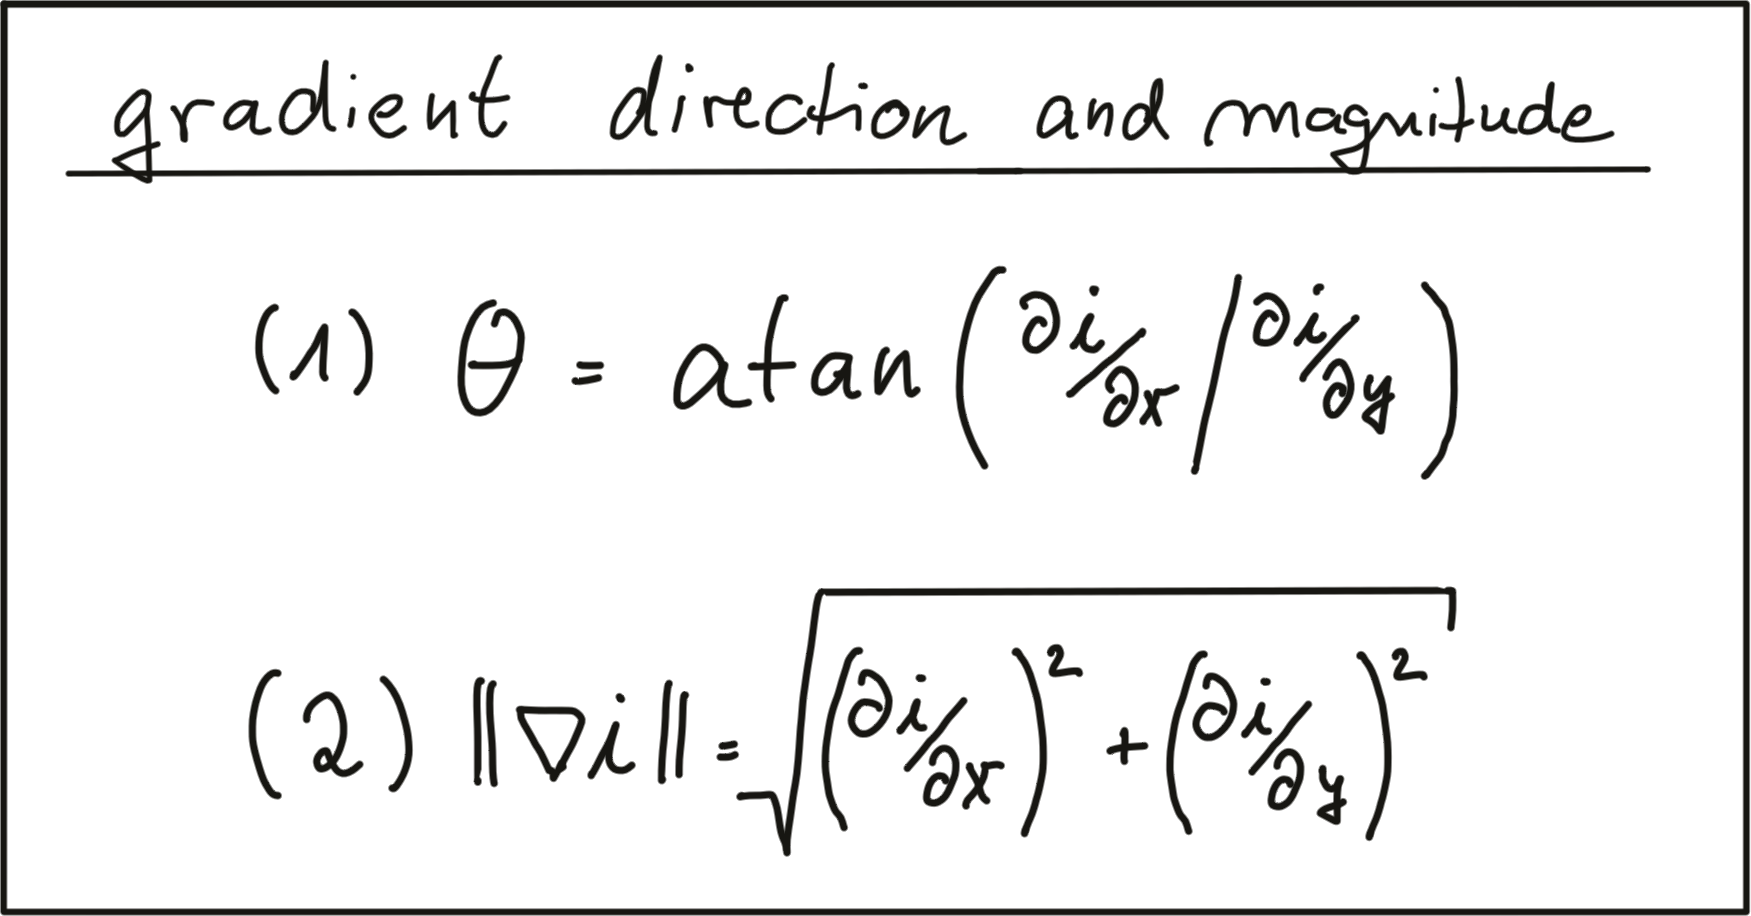 gradient direction and magnitude
(1) θ = atan(∂i/∂x / ∂i/∂y)
(2) ‖∇i‖ = √((∂i/∂x)² + (∂i/∂y)²)